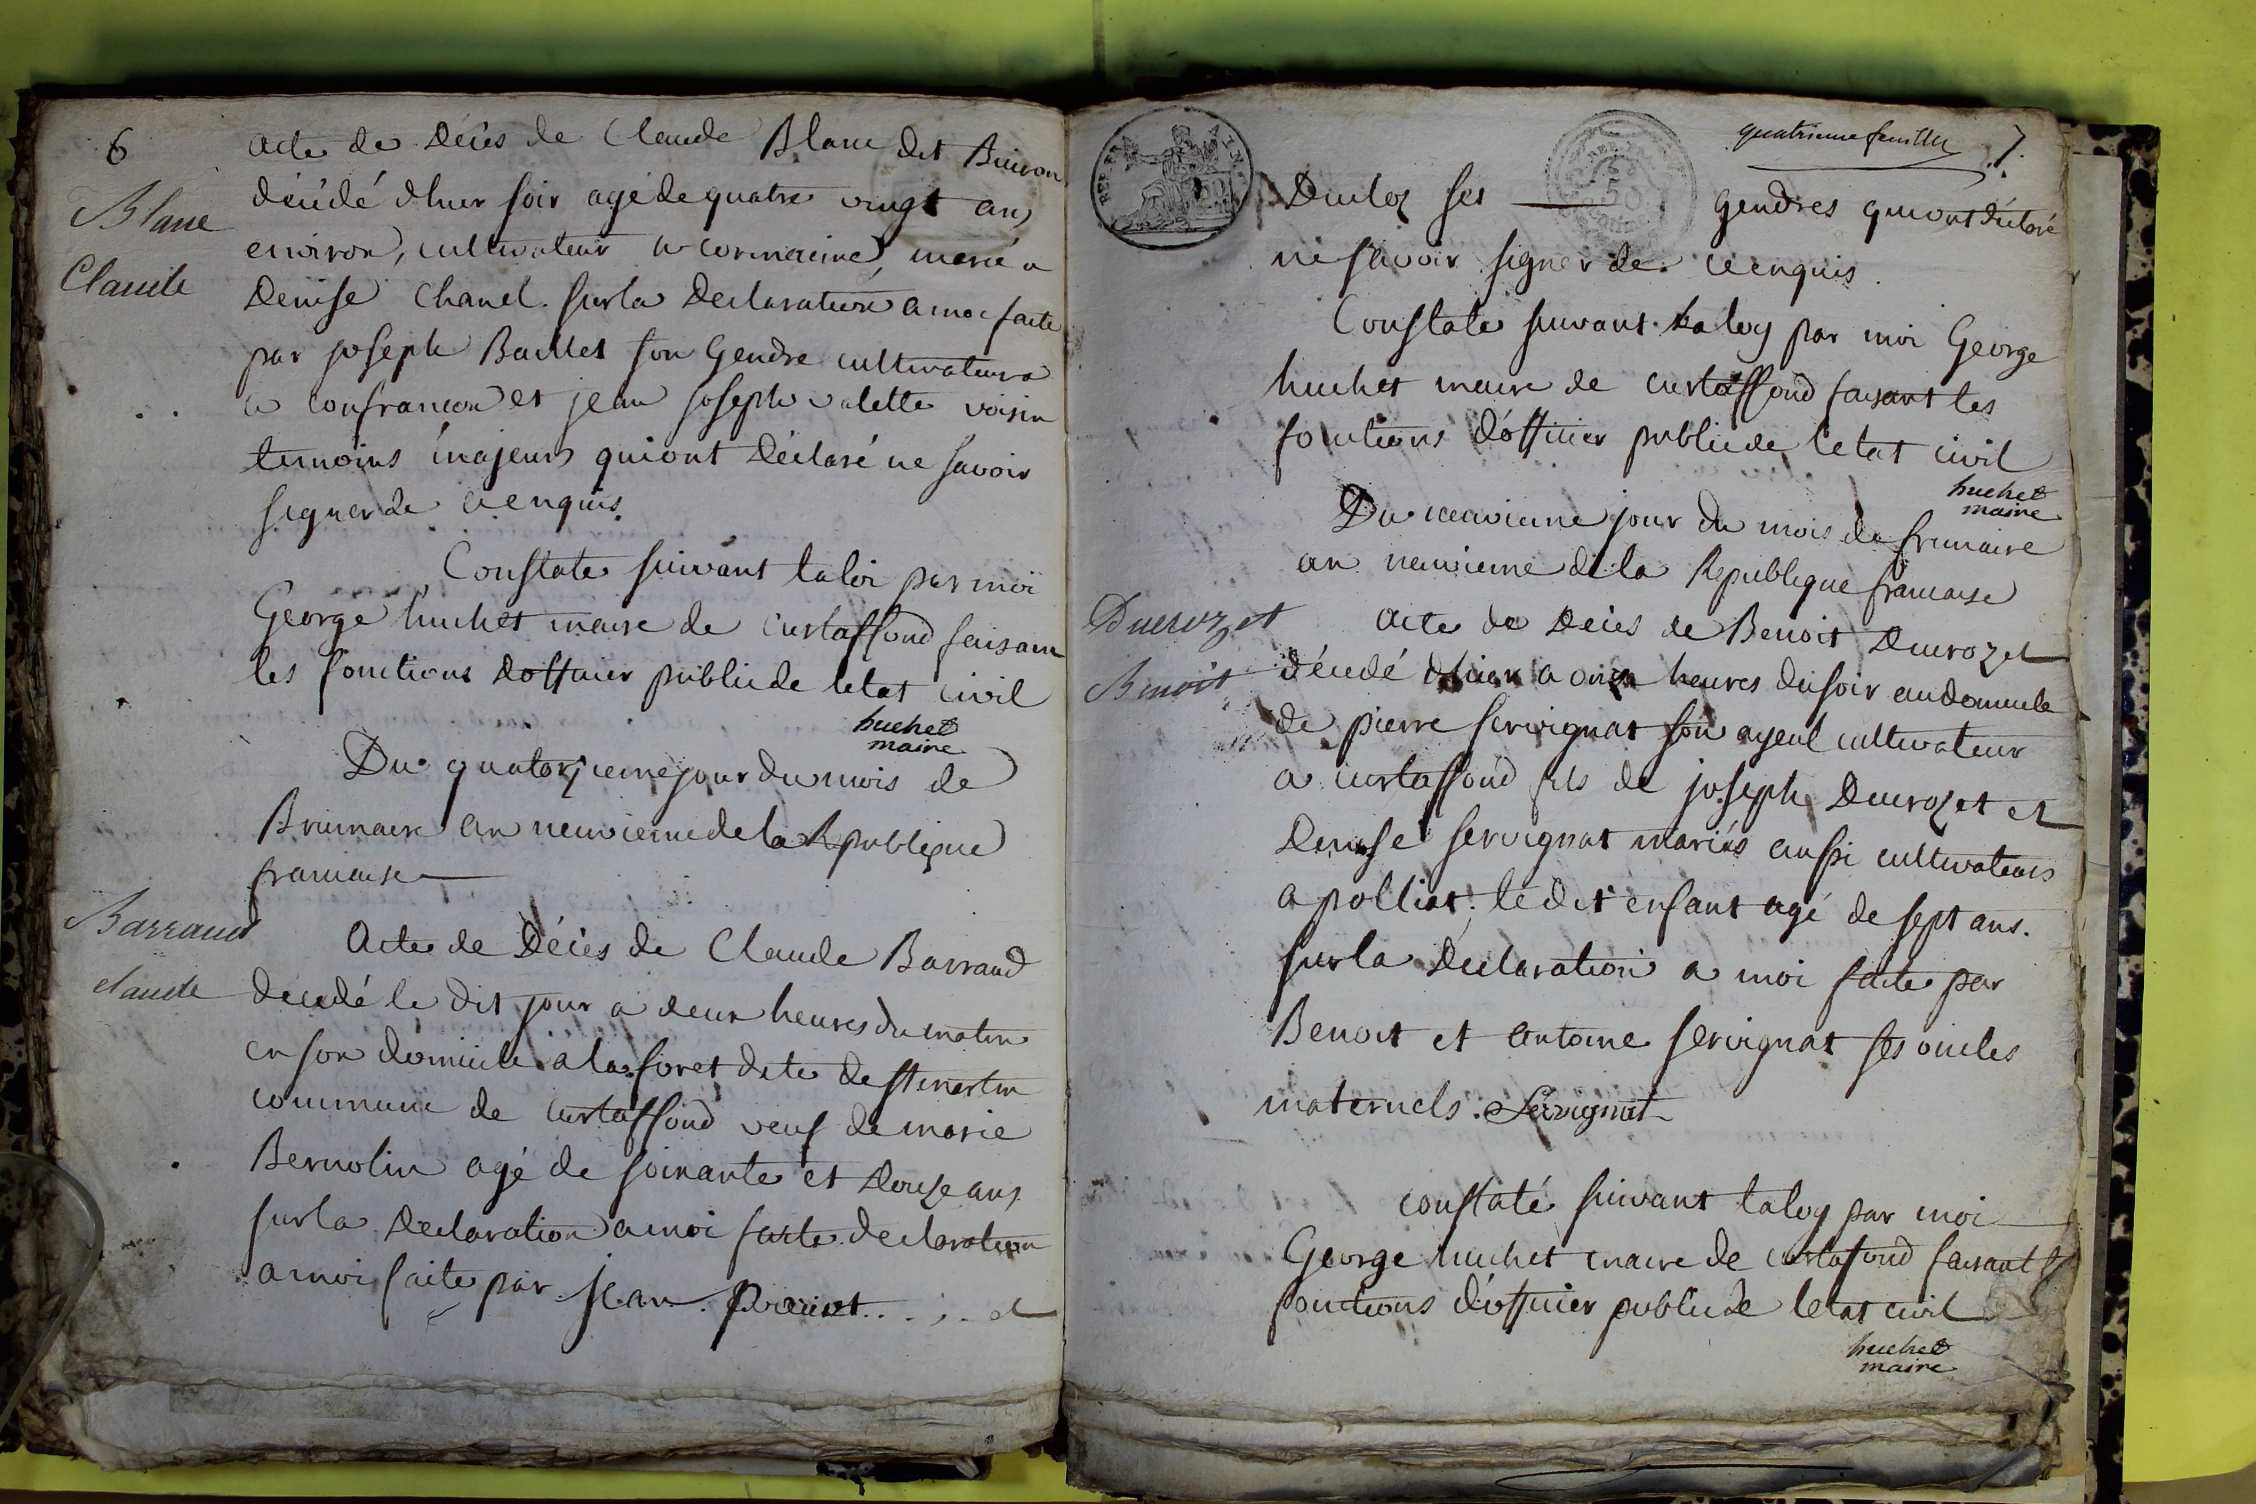 6
Acte de Décès de Claude Blanc dit Buiron
Blanc
décédé d'hier soir agé de quatre vingt ans
Claude
environ, cultivateur a cormaine, marié a
Denise Chanel. sur la Declaration a moi faite
par joseph Baillet son Gendre cultivateur
a confrancon et jean joseph valette voisin
temoins majeurs qui ont Déclaré ne savoir
signer de ce enquis.
Constate suivant la loi par moi
George huchet maire de curtaffond faisant
les fonctions Dofficier public de letat civil
huchet
maire
Du quatorzieme jour du mois de
Brumaire an neuvieme de la Republique
francaise
Barraud
Acte de Décès de Claude Barraud
claude
decedé le dit jour a deux heures du matin
en son domicile a la foret dite de st martin
commune de curtaffond veuf de marie
Bernolin agé de soixante et Douze ans
sur la Declaration a moi faite declaration
a moi faite par jean et
quatrieme feuillet 7.
Ducloz ses gendres qui ont déclaré
ne scavoir signer de ce enquis.
Constate suivant la loy par moi George
huchet maire de curtaffond faisant les
fonctions d'officier public de letat civil
huchet
maire
Du neuvieme jour du mois de frimaire
an neuvieme de la Republique francaise
Ducrozet
Acte de Décès de Benoit Ducrozet
Benoit
décédé d'hier a onze heures du soir au domicile
de pierre servignat son ayeul cultivateur
a curtaffond fils de joseph Ducrozet et
Denise servignat mariés aussi cultivateurs
a polliat. le dit enfant agé de sept ans.
sur la Déclaration a moi faite par
Benoit et antoine servignat ses oncles
maternels. Servignat
constaté suivant la loy par moi
George huchet maire de curtafond faisant
fonctions d'officier public de letat civil
huchet
maire